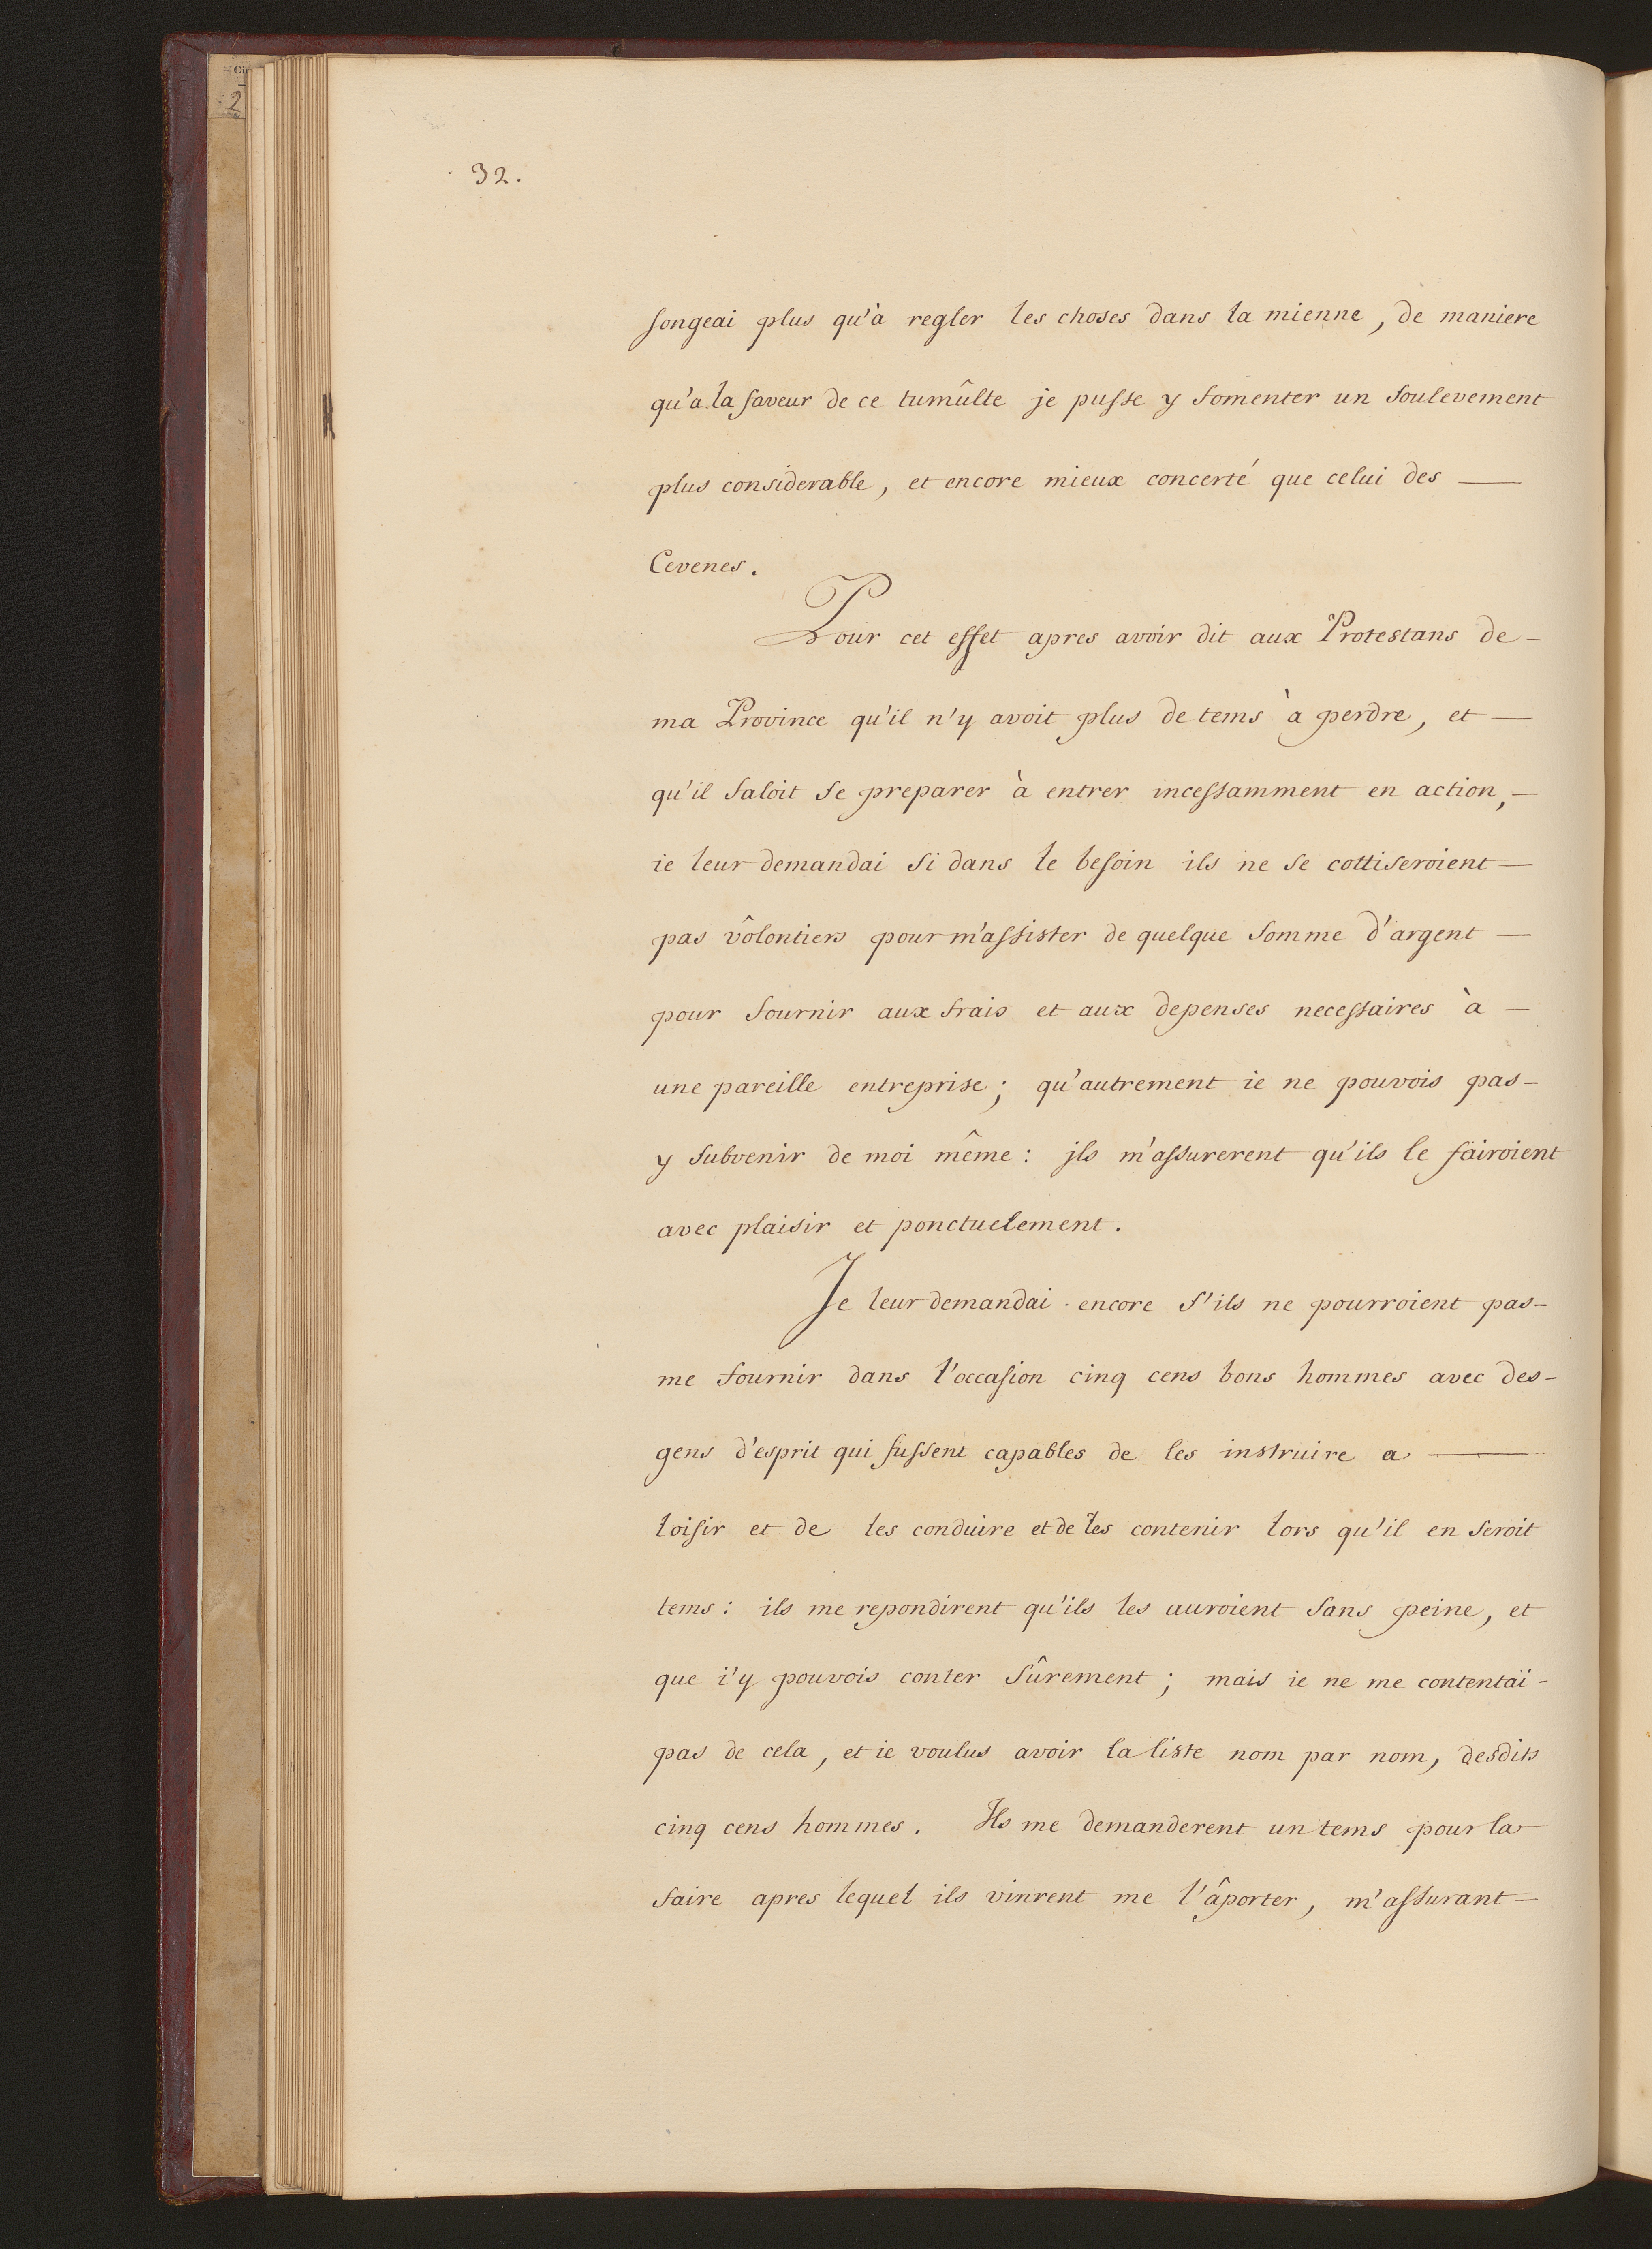 32.
songeai plus qu'à regler les choses dans la mienne, de maniere
qu'a la faveur de ce tumûlte je pusse y fomenter un soulevement
plus considerable, et encore mieux concerté que celui des —
Cevenes.
Pour cet effet apres avoir dit aux Protestans de -
ma Province qu'il n'y avoit plus de tems à perdre, et —
qu'il faloit se preparer à entrer incessamment en action, —
ie leur demandai si dans le besoin ils ne se cottiseroient —
pas vôlontiers pour m'assister de quelque somme d'argent —
pour fournir aux frais et aux depenses necessaires à —
une pareille entreprise; qu'autrement ie ne pouvois pas -
y subvenir de moi même: jls m'assurerent qu'ils le fairoient
avec plaisir et ponctuelement.
Je leur demandai encore s'ils ne pourroient pas -
me fournir dans l'occasion cinq cens bons hommes avec des -
gens d'esprit qui fussent capables de les instruire a —
loisir et de les conduire et de les contenir lors qu'il en seroit
tems: ils me repondirent qu'ils les auroient sans peine, et
que i'y pouvois conter sûrement; mais ie ne me contentai -
pas de cela, et ie voulus avoir la liste nom par nom, desdits
cinq cens hommes. Ils me demanderent un tems pour la
faire apres lequel ils vinrent me l'âporter, m'assurant —